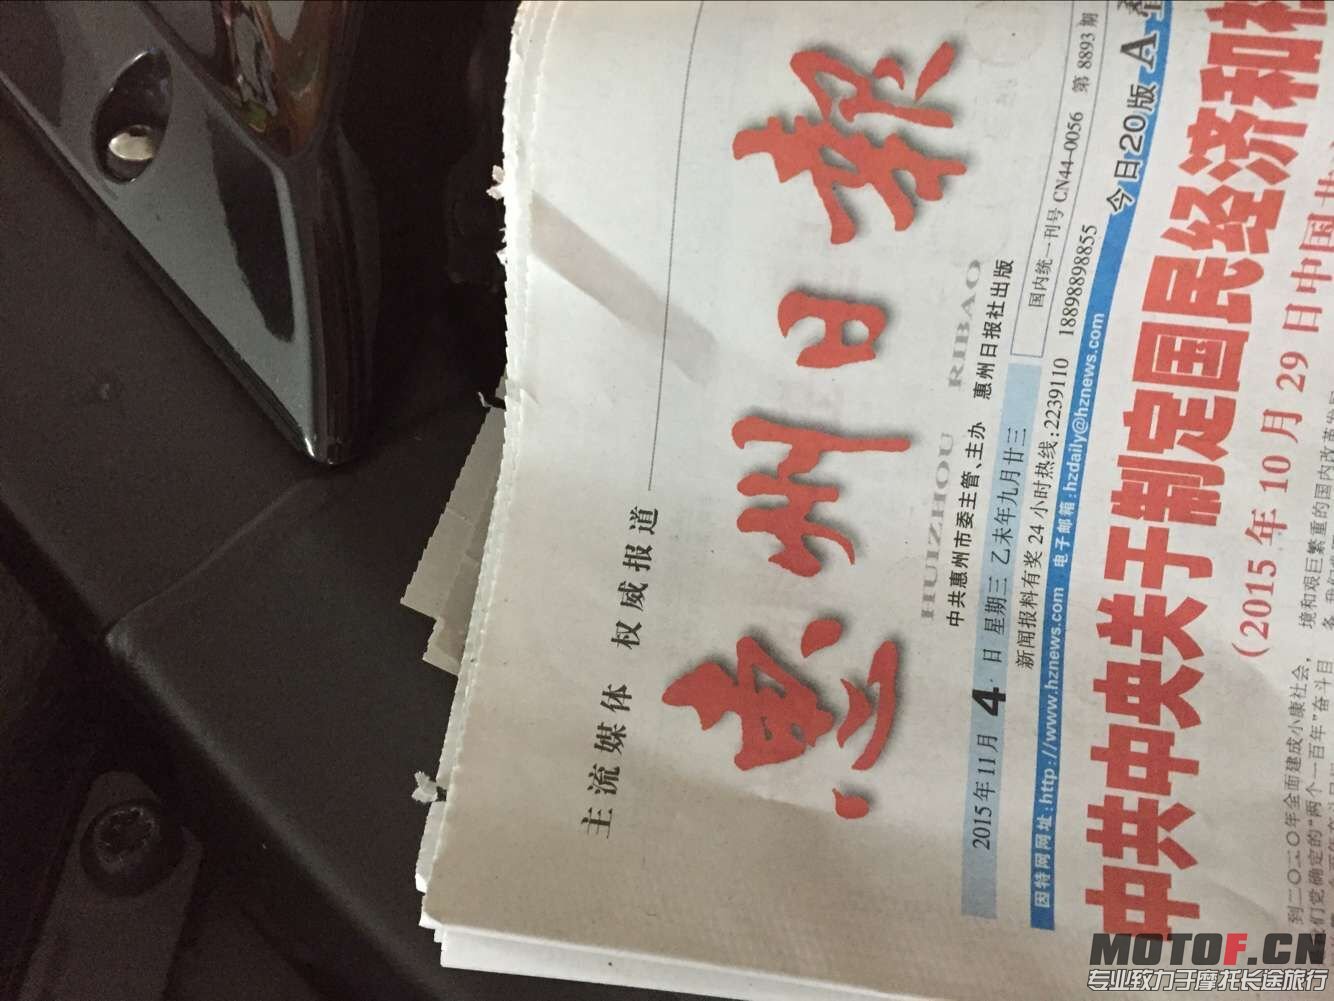 主流媒体 权威报道
惠州日报
HUIZHOU RIBAO
中共惠州市委主管、主办 惠州日报社出版
2015年11月4日 星期三 乙未年九月廿三
国内统一刊号CN44-0056 第8893期
新闻报料有奖24小时热线:2239110 18898898855
因特网网址:http://www.hznews.com 电子邮箱:hzdaily@hznews.com
今日20版 A
中共中央关于制定国民经济和社
(2015年10月29日中国共
到二〇二〇年全面建成小康社会,
们党确定的“两个一百年”奋斗目
境和艰巨繁重的国内改革发
MOTOF.CN
专业致力于摩托长途旅行